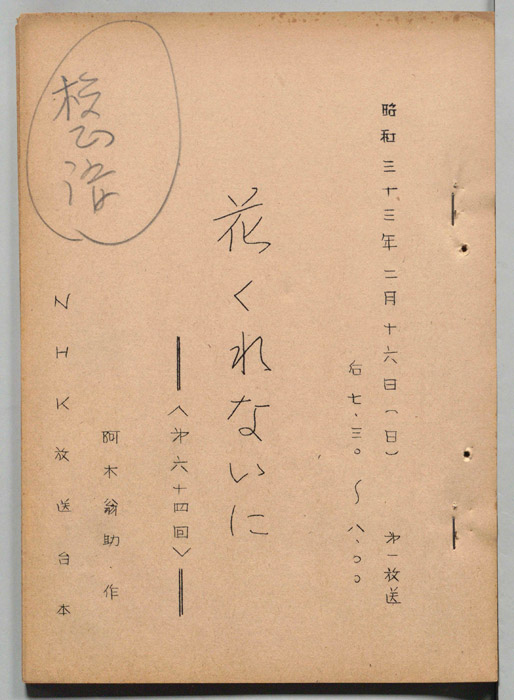 昭和三十三年二月十六日(日) 第一放送
后七.三〇〜八.〇〇
花くれないに
〈第六十四回〉
阿木翁助・作
NHK放送台本
校正済